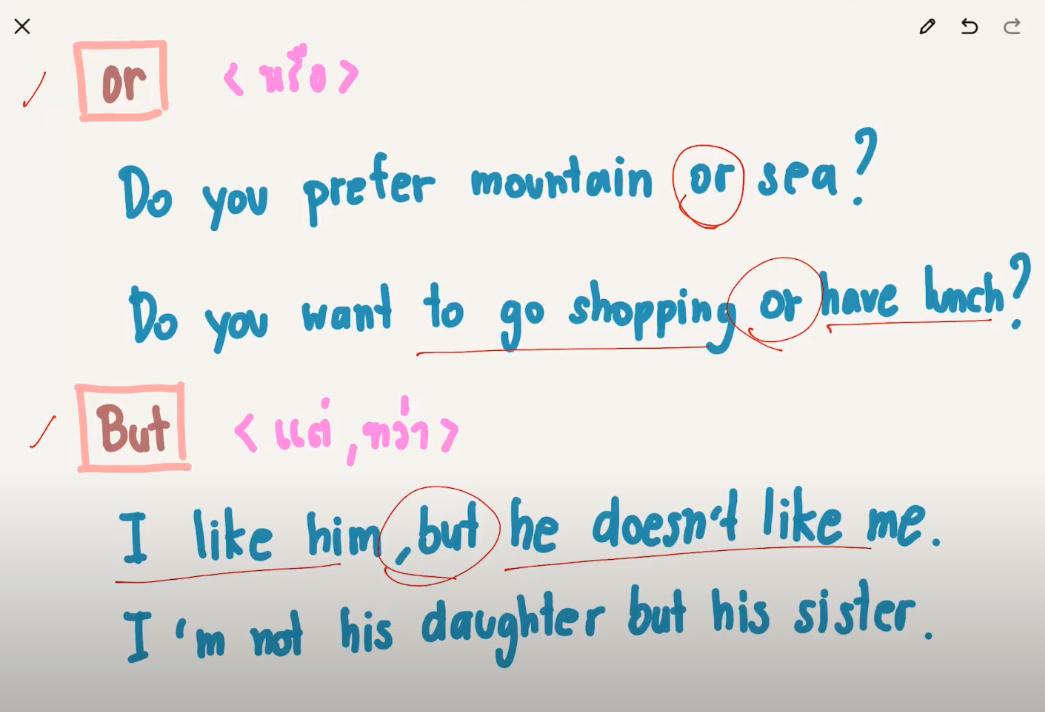 or <หรือ>
Do you prefer mountain or sea?
Do you want to go shopping or have lunch?
But <แต่, ทว่า>
I like him, but he doesn't like me.
I'm not his daughter but his sister.